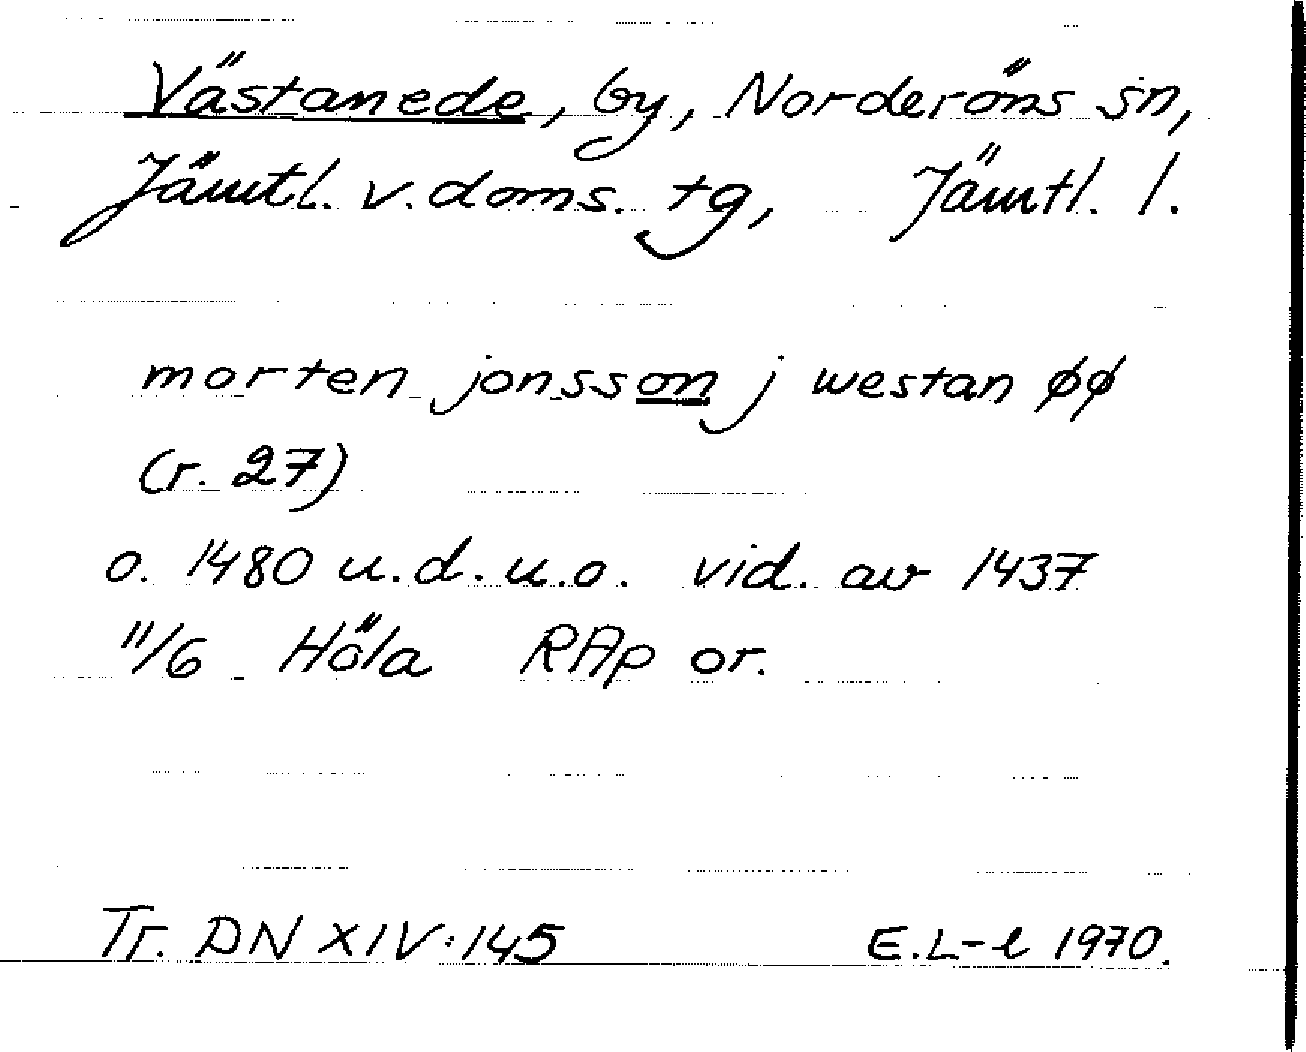 Västanede, by, Norderöns sn,
Jämtl. v. doms. tg, Jämtl. l.
morten jonsson j westan øø
(r. 27)
o. 1480 u.d. u.o. vid. av 1437
11/6 Höla RAp or.
Tr. DN XIV:145 E.L-l 1970.